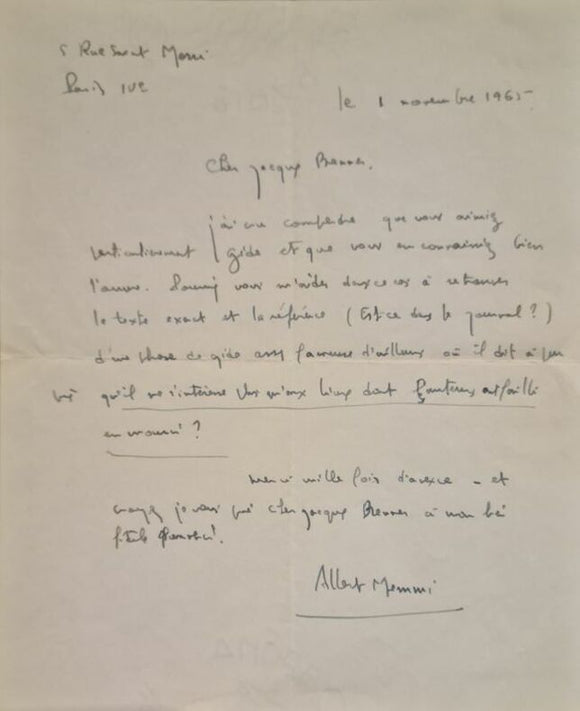 5 Rue Saint Merri
Paris IVe
le 1 novembre 1965
Cher Jacques Brenner,
j'ai cru comprendre que vous aimiez
particulièrement Gide et que vous en connaissiez bien
l'œuvre. Pourriez vous m'aider dans ce cas à retrouver
le texte exact et la référence (Est-ce dans le journal ?)
d'une phrase de Gide assez fameuse d'ailleurs où il dit à peu
près qu'il ne s'intéresse plus qu'aux livres dont l'auteur a failli
en mourir ?
Merci mille fois d'avance - et
croyez je vous prie cher Jacques Brenner à mon
fidèle
Albert Memmi